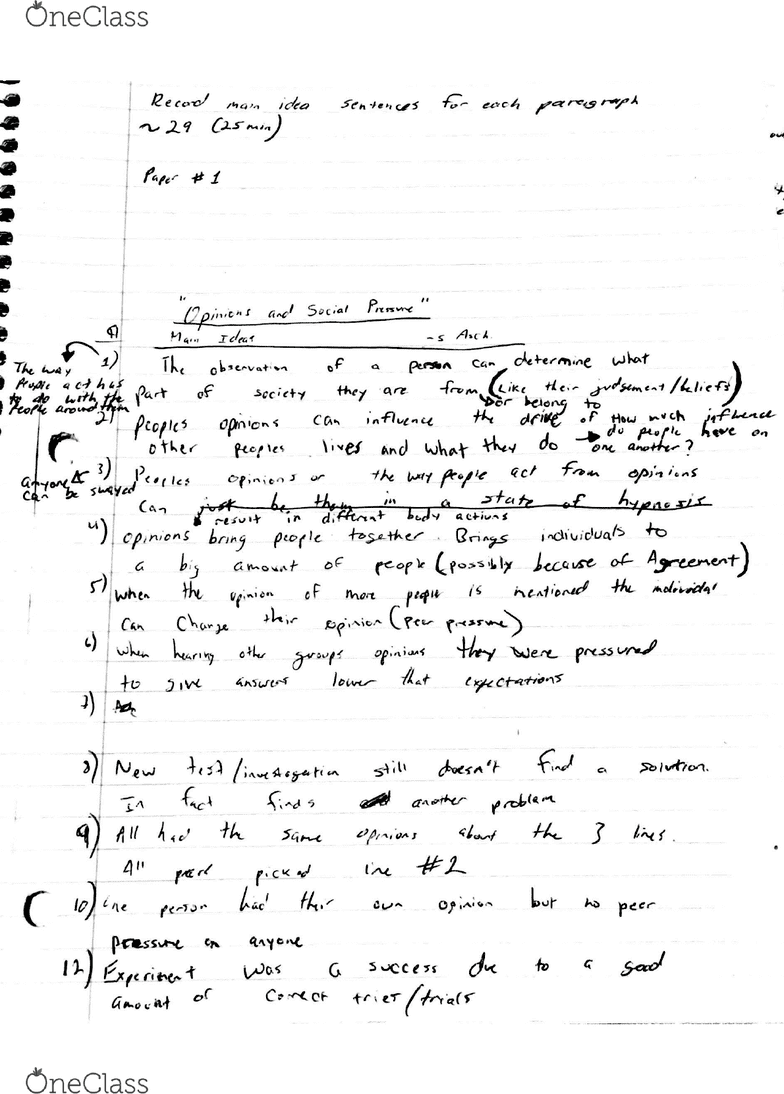 OneClass
Record main idea sentences for each paragraph
~ 29 (25 min)
Paper # 1
"Opinions and Social Pressure"
Main Ideas - S Asch
1) The observation of a person can determine what
The way People act has to do with the People around them
part of society they are from (Like their judgement/beliefs)
or belong to
2) Peoples opinions can influence the drive of
How much influence do people have on one another?
other peoples lives and what they do
anyone can be swayed
3) Peoples opinions or the way people act from opinions
can just be them in a state of hypnosis
result in different body actions
4) opinions bring people together. Brings individuals to
a big amount of people (possibly because of Agreement)
5) When the opinion of more people is mentioned the individal
can Change their opinion (Peer pressure)
6) When hearing other groups opinions they were pressured
to give answers lower that expectations
7)
8) New test/investagation still doesn't find a solution.
In fact finds another problem
9) All had the same opinions about the 3 lines.
All picked line #2
10) One person had their own opinion but no peer
pressure on anyone
12) Experiment was a success due to a good
amount of correct tries/trials
OneClass